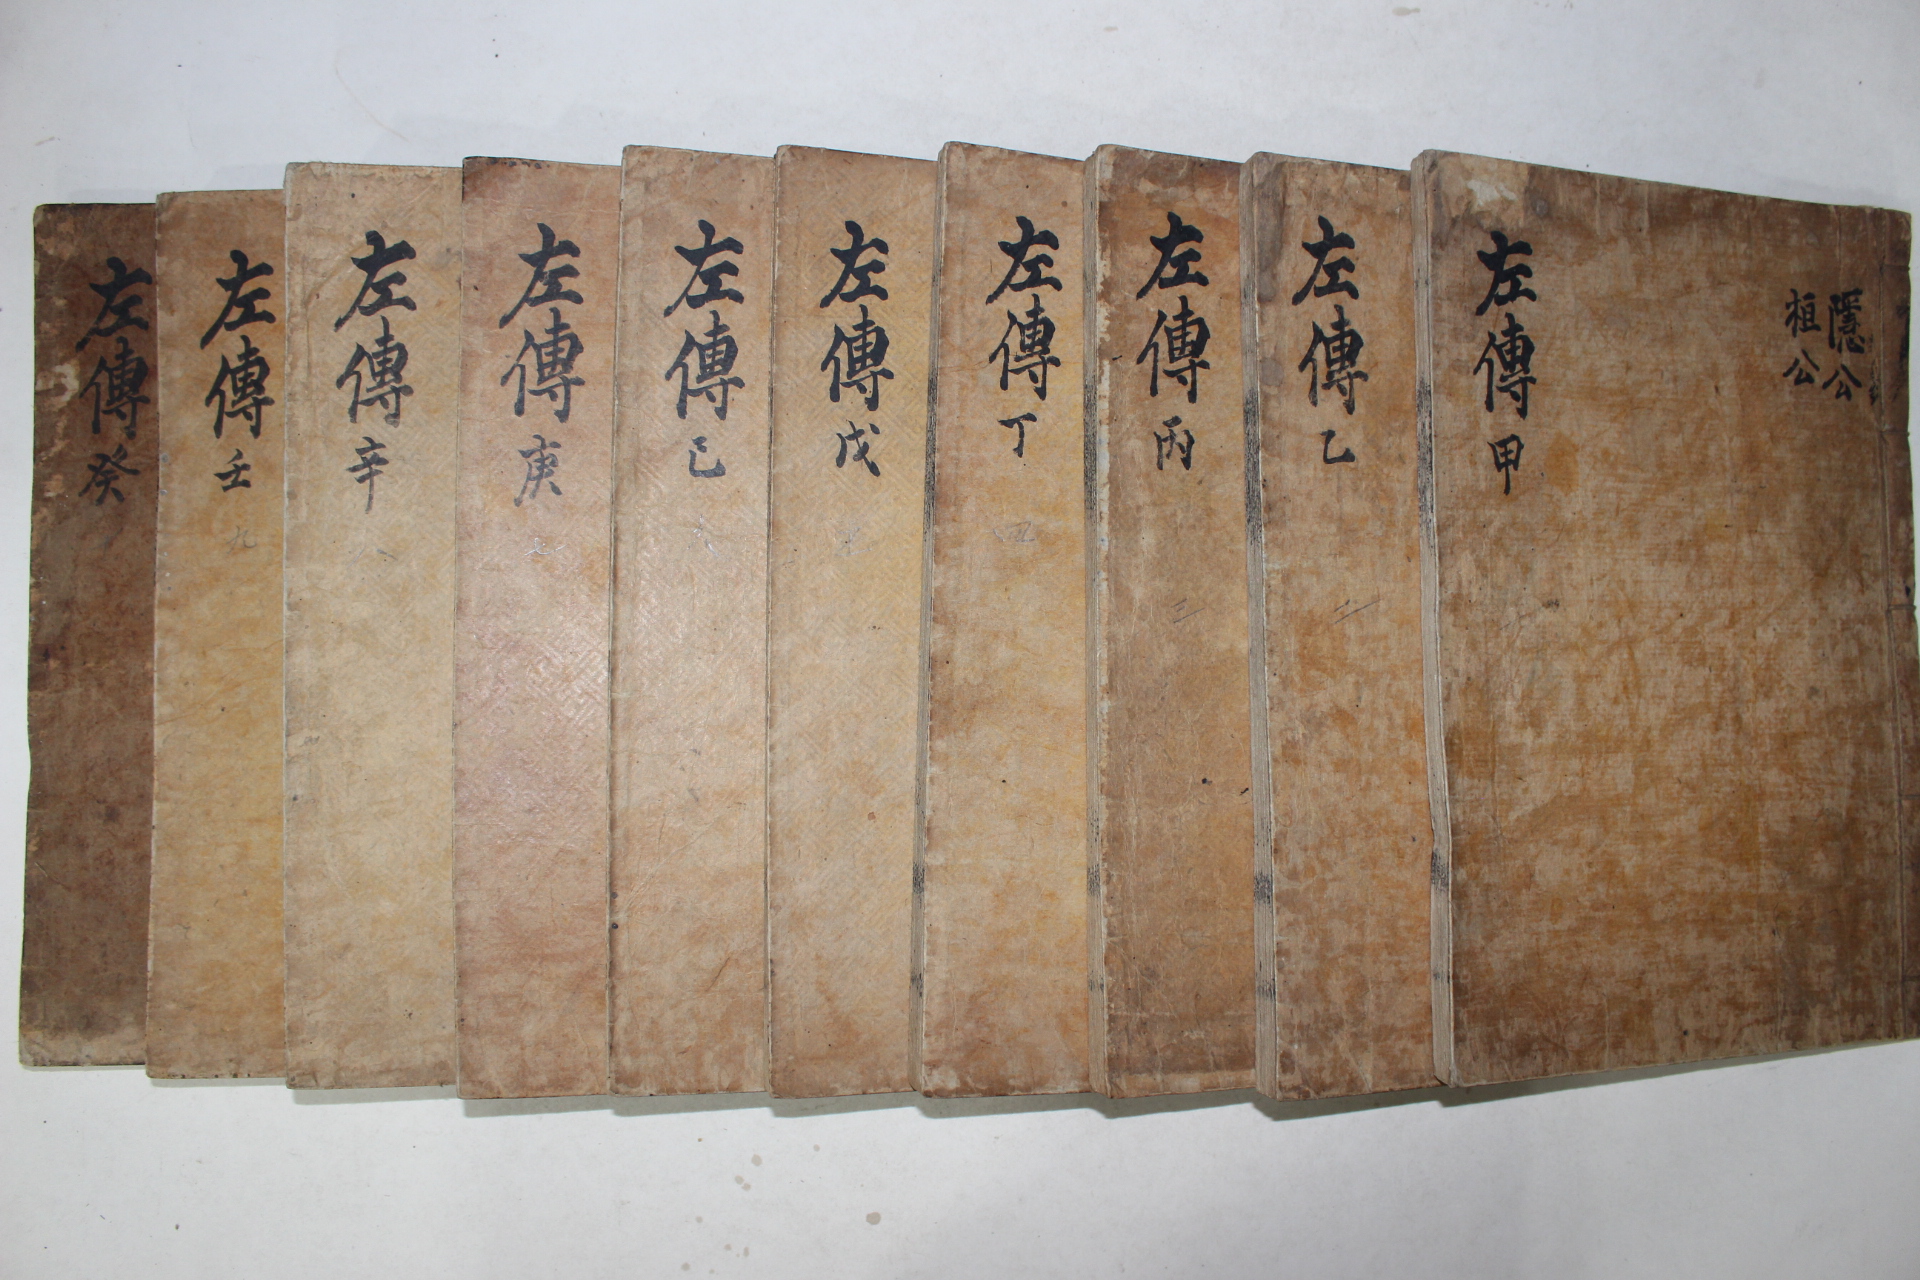 隱公
桓公
左傳 甲
左傳 乙
二
左傳 丙
三
左傳 丁
四
左傳 戊
五
左傳 己
六
左傳 庚
七
左傳 辛
八
左傳 壬
九
左傳 癸